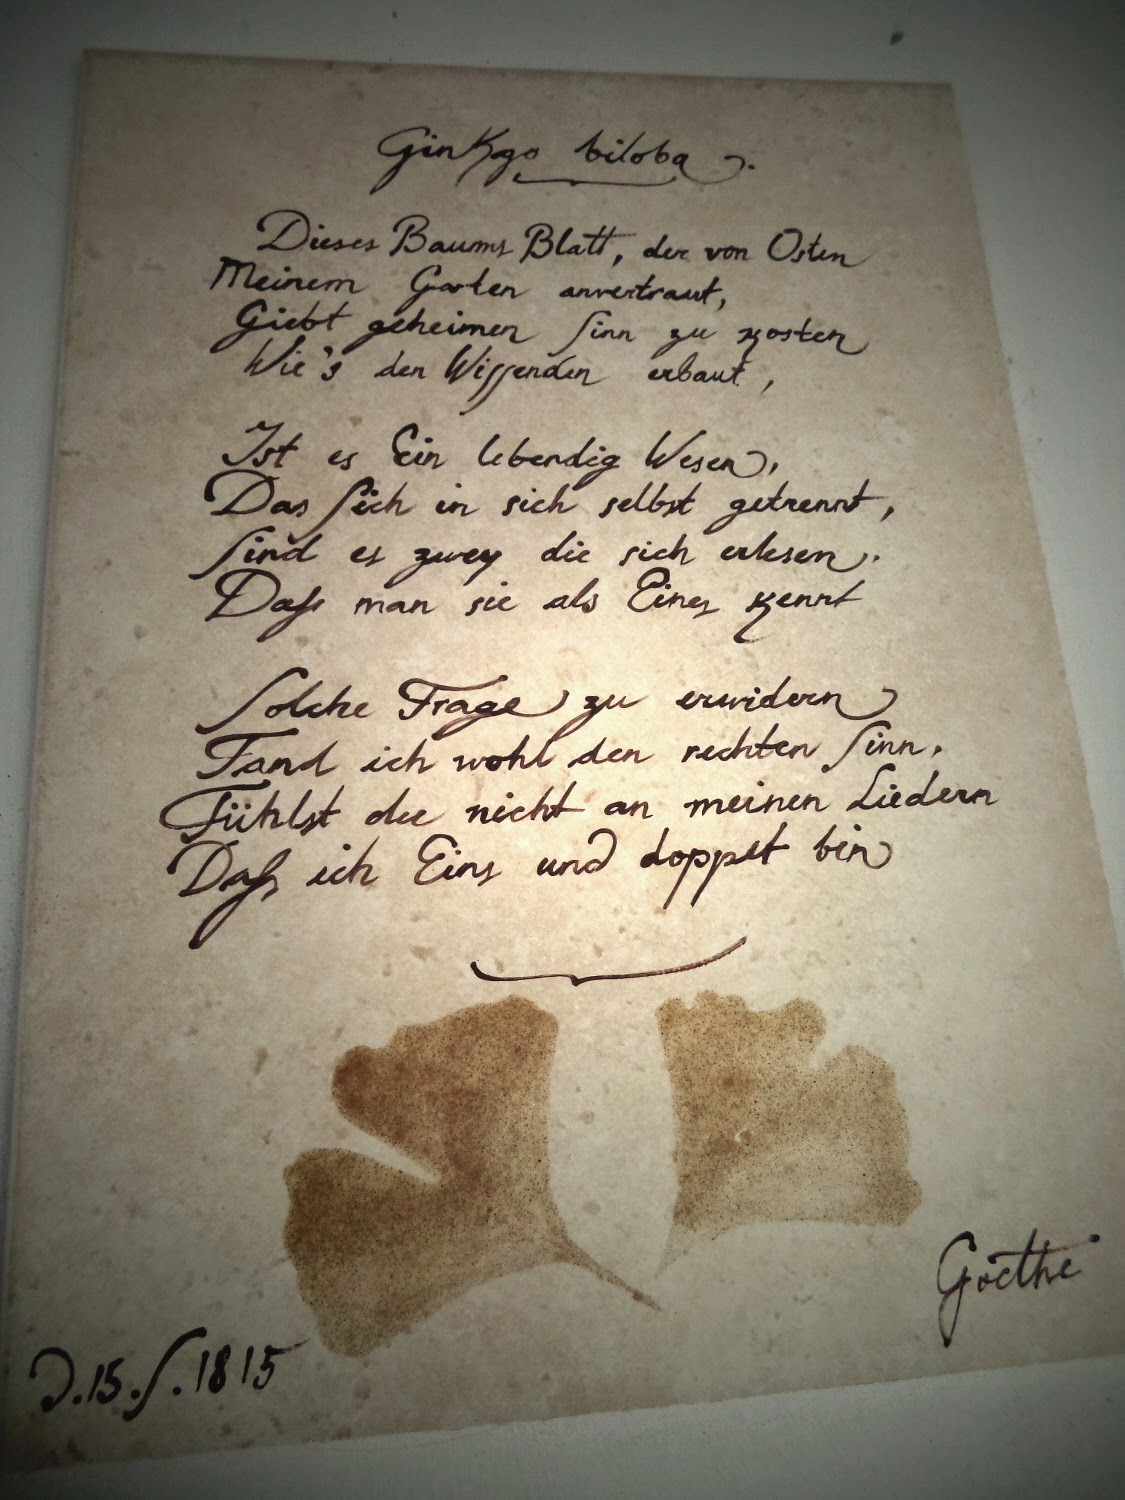 Ginkgo biloba.
Dieses Baums Blatt, der von Osten
Meinem Garten anvertraut,
Giebt geheimen Sinn zu kosten
Wie's den Wissenden erbaut,
Ist es Ein lebendig Wesen,
Das sich in sich selbst getrennt,
Sind es zwey die sich erlesen.
Daß man sie als Eines kennt
Solche Frage zu erwidern
Fand ich wohl den rechten Sinn.
Fühlst du nicht an meinen Liedern
Daß ich Eins und doppelt bin
Goethe
D.15.S.1815